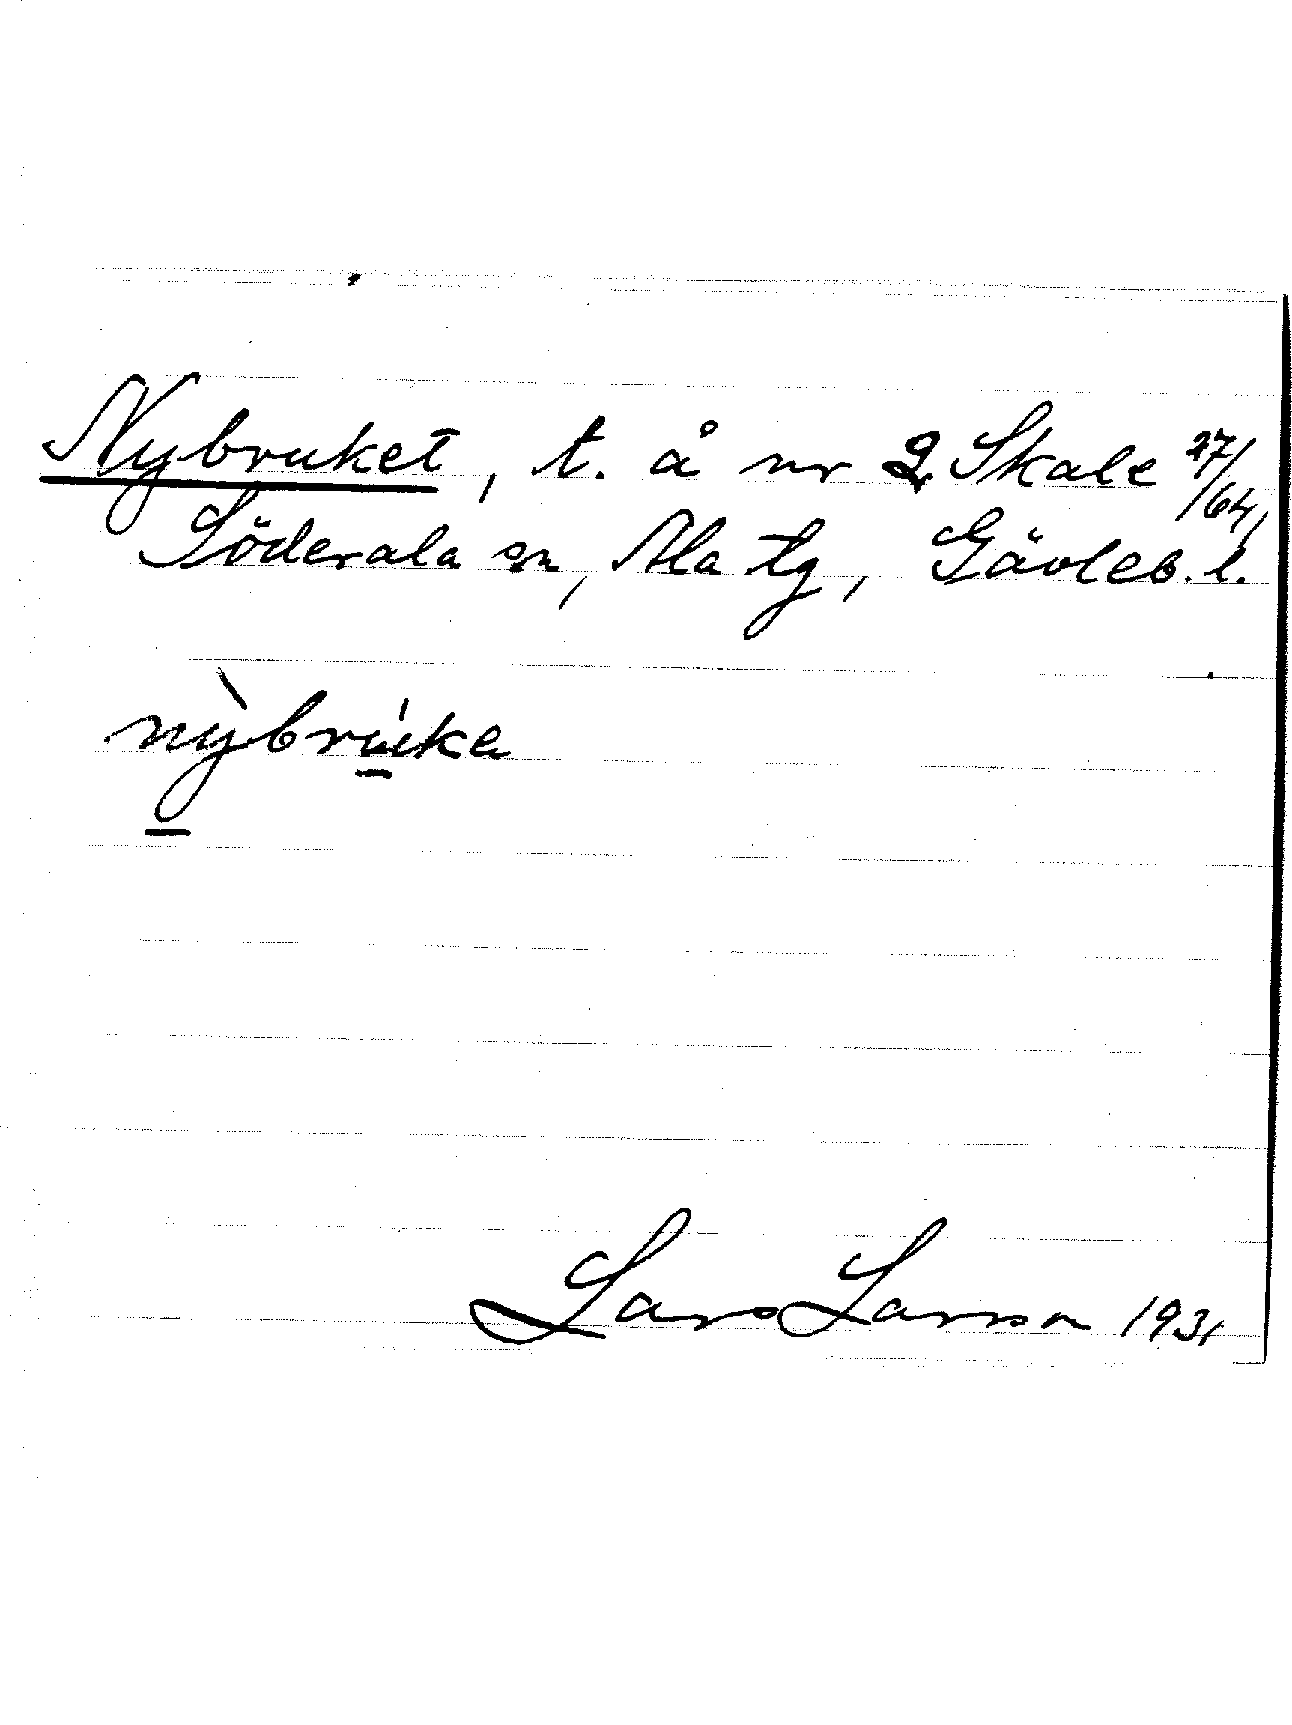 Nybruket, t. å nr 2 Skale 27/64,
Söderala sn, Ala tg, Gävleb. l.
nỳbrúka
Lars Larsson 1931